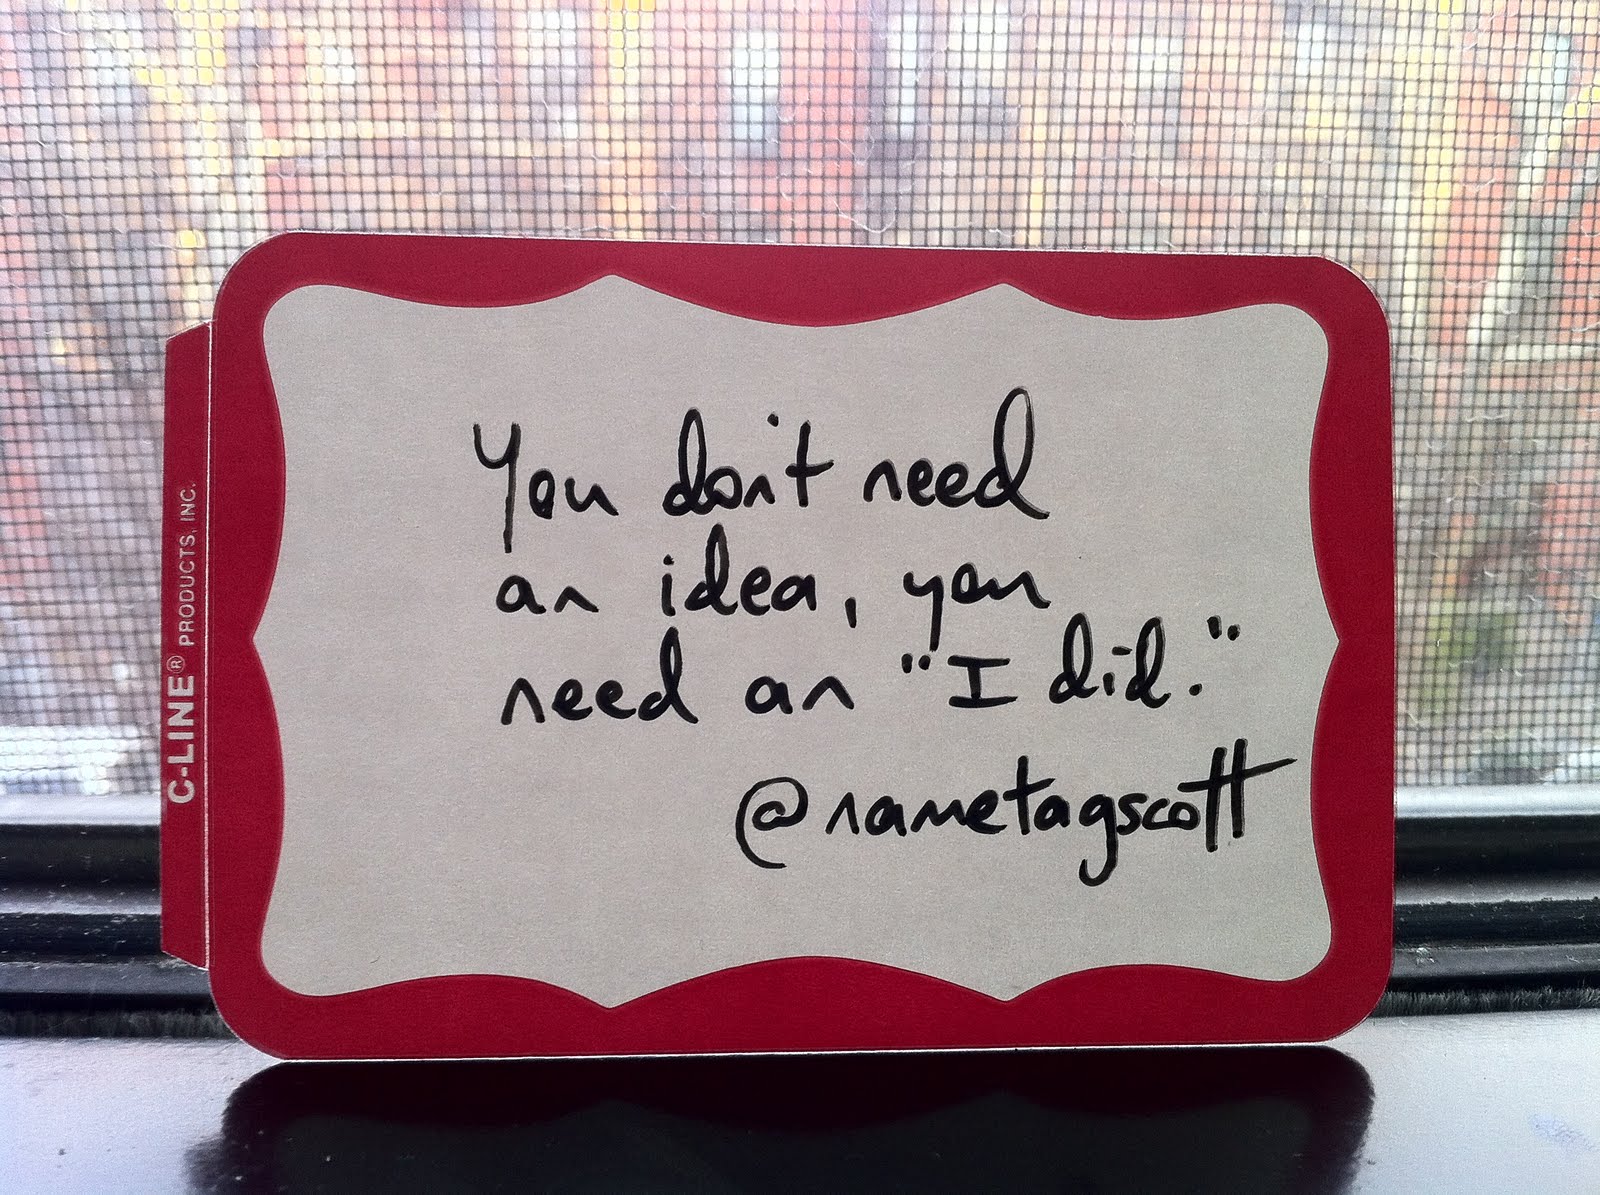 You don't need
an idea, you
need an "I did."
@nametagscott
C-LINE® PRODUCTS, INC.